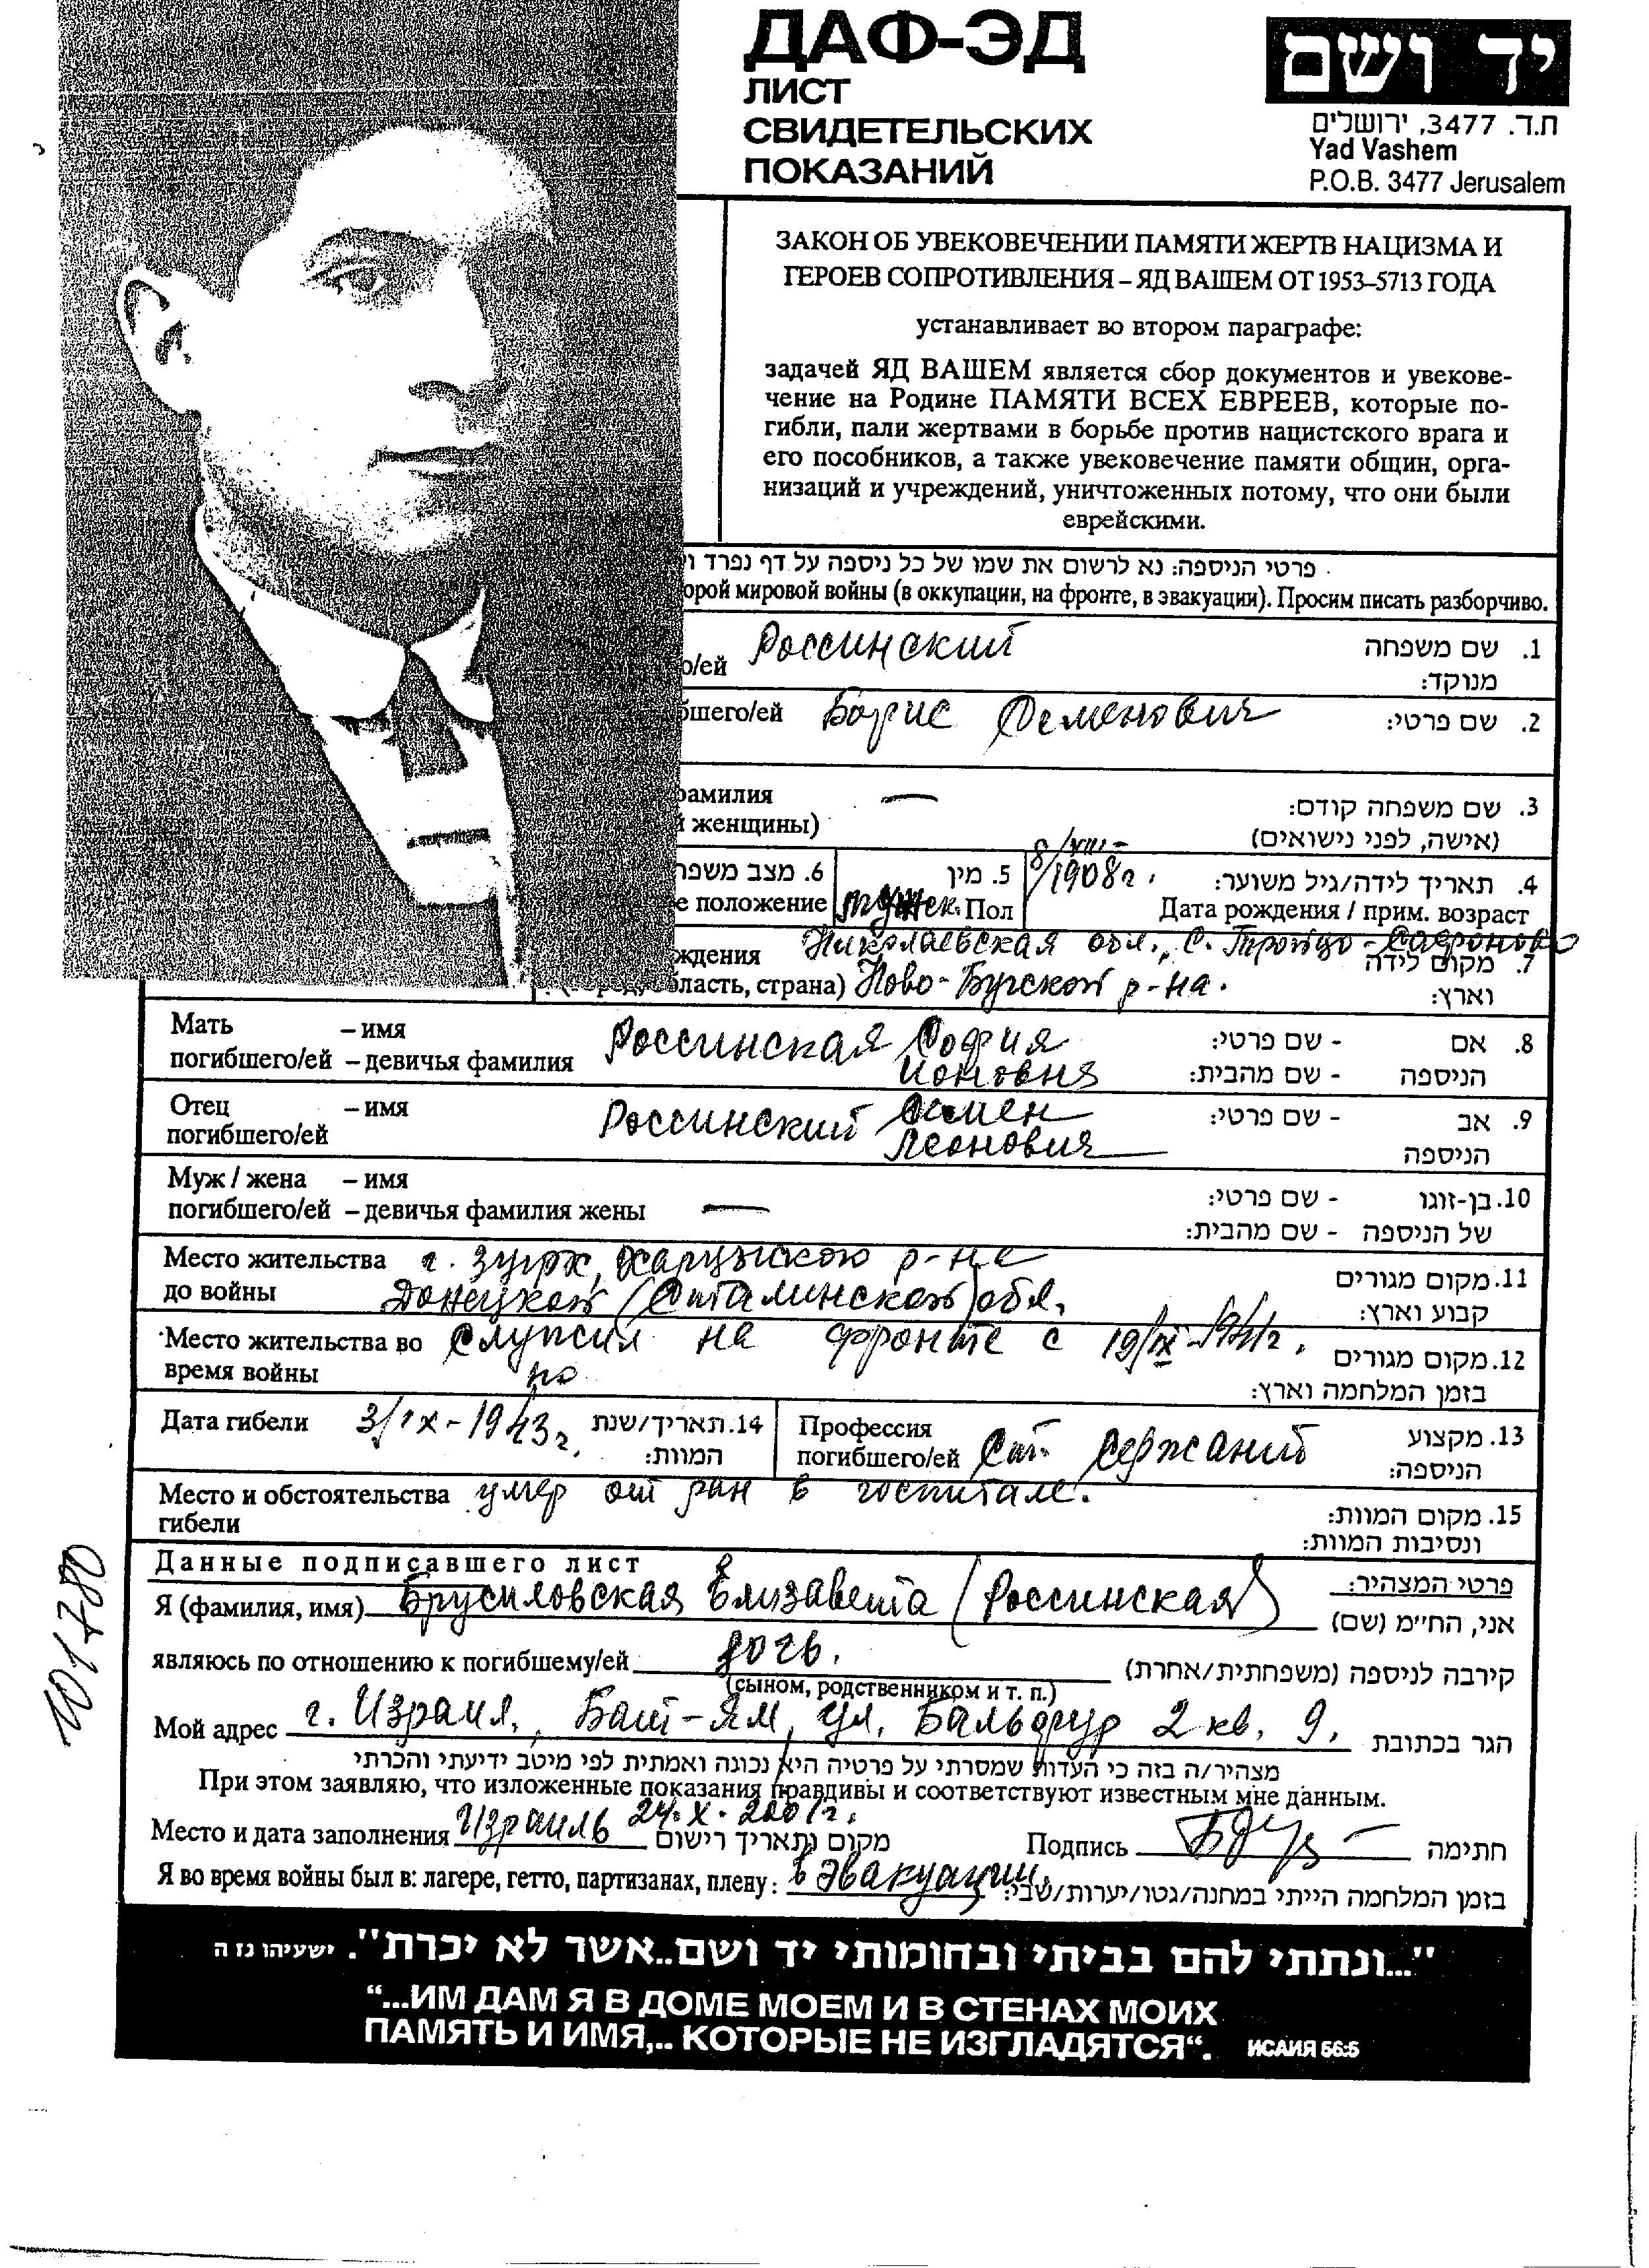 ДАФ-ЭД
ЛИСТ
СВИДЕТЕЛЬСКИХ
ПОКАЗАНИЙ
יד ושם
ת.ד. 3477, ירושלים
Yad Vashem
P.O.B. 3477 Jerusalem
ЗАКОН ОБ УВЕКОВЕЧЕНИИ ПАМЯТИ ЖЕРТВ НАЦИЗМА И
ГЕРОЕВ СОПРОТИВЛЕНИЯ – ЯД ВАШЕМ ОТ 1953–5713 ГОДА
устанавливает во втором параграфе:
задачей ЯД ВАШЕМ является сбор документов и увекове-
чение на Родине ПАМЯТИ ВСЕХ ЕВРЕЕВ, которые по-
гибли, пали жертвами в борьбе против нацистского врага и
его пособников, а также увековечение памяти общин, орга-
низаций и учреждений, уничтоженных потому, что они были
еврейскими.
פרטי הניספה: נא לרשום את שמו של כל ניספה על דף נפרד ו
орой мировой войны (в оккупации, на фронте, в эвакуации). Просим писать разборчиво.
о/ей Россинский 1. שם משפחה
מנוקד:
бшего/ей Борис Семенович 2. שם פרטי:
амилия — 3. שם משפחה קודם:
й женщины) (אישה, לפני נישואים)
6. מצב משפח 5. מין 8/VIII- 4. תאריך לידה/גיל משוער:
е положение мужск. Пол 1908г. Дата рождения / прим. возраст
ждения Николаевская обл., с. Троицо-Сафроново 7. מקום לידה
бласть, страна) Ново-Бугской р-на. וארץ:
Мать – имя Россинская София 8. אם - שם פרטי:
погибшего/ей – девичья фамилия Ионовня הניספה - שם מהבית:
Отец – имя Россинский Семен 9. אב - שם פרטי:
погибшего/ей Леонович הניספה
Муж / жена – имя 10. בן-זוגו - שם פרטי:
погибшего/ей – девичья фамилия жены — של הניספה - שם מהבית:
Место жительства г. Зугрэ, Харцызского р-на 11. מקום מגורים
до войны Донецкой (Сталинской) обл. קבוע וארץ:
Место жительства во Служил на фронте с 19/IX-1941г. 12. מקום מגורים
время войны по בזמן המלחמה וארץ:
Дата гибели 3/IX-1943г. 14. תאריך/שנת Профессия 13. מקצוע
המוות: погибшего/ей Ст. Сержант הניספה:
Место и обстоятельства умер от ран в госпитале. 15. מקום המוות:
гибели ונסיבות המוות:
Данные подписавшего лист פרטי המצהיר:
Я (фамилия, имя) Брусиловская Елизавета (Россинская) אני, הח״מ (שם)
являюсь по отношению к погибшему/ей дочь. קירבה לניספה (משפחתית/אחרת)
(сыном, родственником и т. п.)
Мой адрес г. Израил, Бат-Ям, ул. Бальфур 2 кв. 9. הגר בכתובת
מצהיר/ה בזה כי העדות שמסרתי על פרטיה היא נכונה ואמתית לפי מיטב ידיעתי והכרתי
При этом заявляю, что изложенные показания правдивы и соответствуют известным мне данным.
Место и дата заполнения Израиль 24.X.2001г. מקום ותאריך רישום Подпись חתימה
Я во время войны был в: лагере, гетто, партизанах, плену: в эвакуации. בזמן המלחמה הייתי במחנה/גטו/יערות/שבי:
101780
"...ונתתי להם בביתי ובחומותי יד ושם..אשר לא יכרת". ישעיהו נז ה
“...ИМ ДАМ Я В ДОМЕ МОЕМ И В СТЕНАХ МОИХ
ПАМЯТЬ И ИМЯ,.. КОТОРЫЕ НЕ ИЗГЛАДЯТСЯ“. ИСАИЯ 56:5